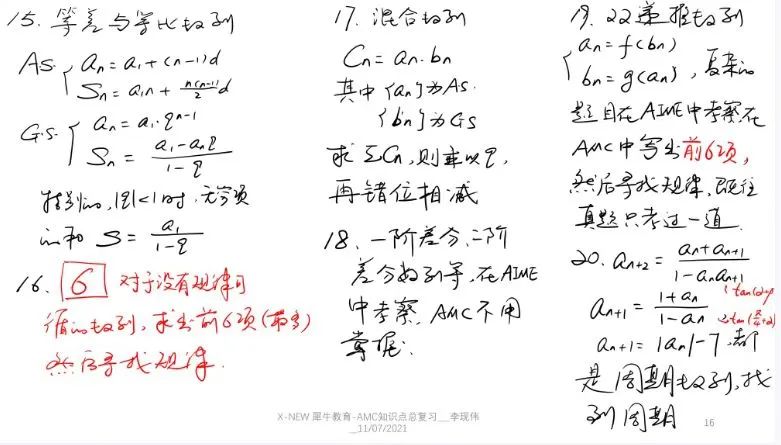 15. 等差与等比数列
AS. { an = a1 + (n-1)d
Sn = a1n + n(n-1)/2 d
G.S. { an = a1·q^(n-1)
Sn = (a1 - anq)/(1 - q)
特别的, |q|<1时, 无穷项
的和 S = a1/(1-q)
16. 6 对于没有规律可
循的数列, 求出前6项(最多)
然后寻找规律.
17. 混合数列
Cn = an·bn
其中{an}为AS.
{bn}为GS
求ΣCn, 则乘以q,
再错位相减
18. 一阶差分、二阶
差分数列等, 在AIME
中考察, AMC不用
掌握.
19. 双递推数列
{ an = f(bn)
bn = g(an), 复杂的
题目在AIME中考察, 在
AMC中写出前6项,
然后寻找规律, 既往
真题只考过一道.
20. an+2 = (an + an+1)/(1 - an an+1)
an+1 = (1 + an)/(1 - an)
an+1 = |an| - 7, 都
是周期数列, 找
到周期
X-NEW 犀牛教育-AMC知识点总复习__李现伟
__11/07/2021
16